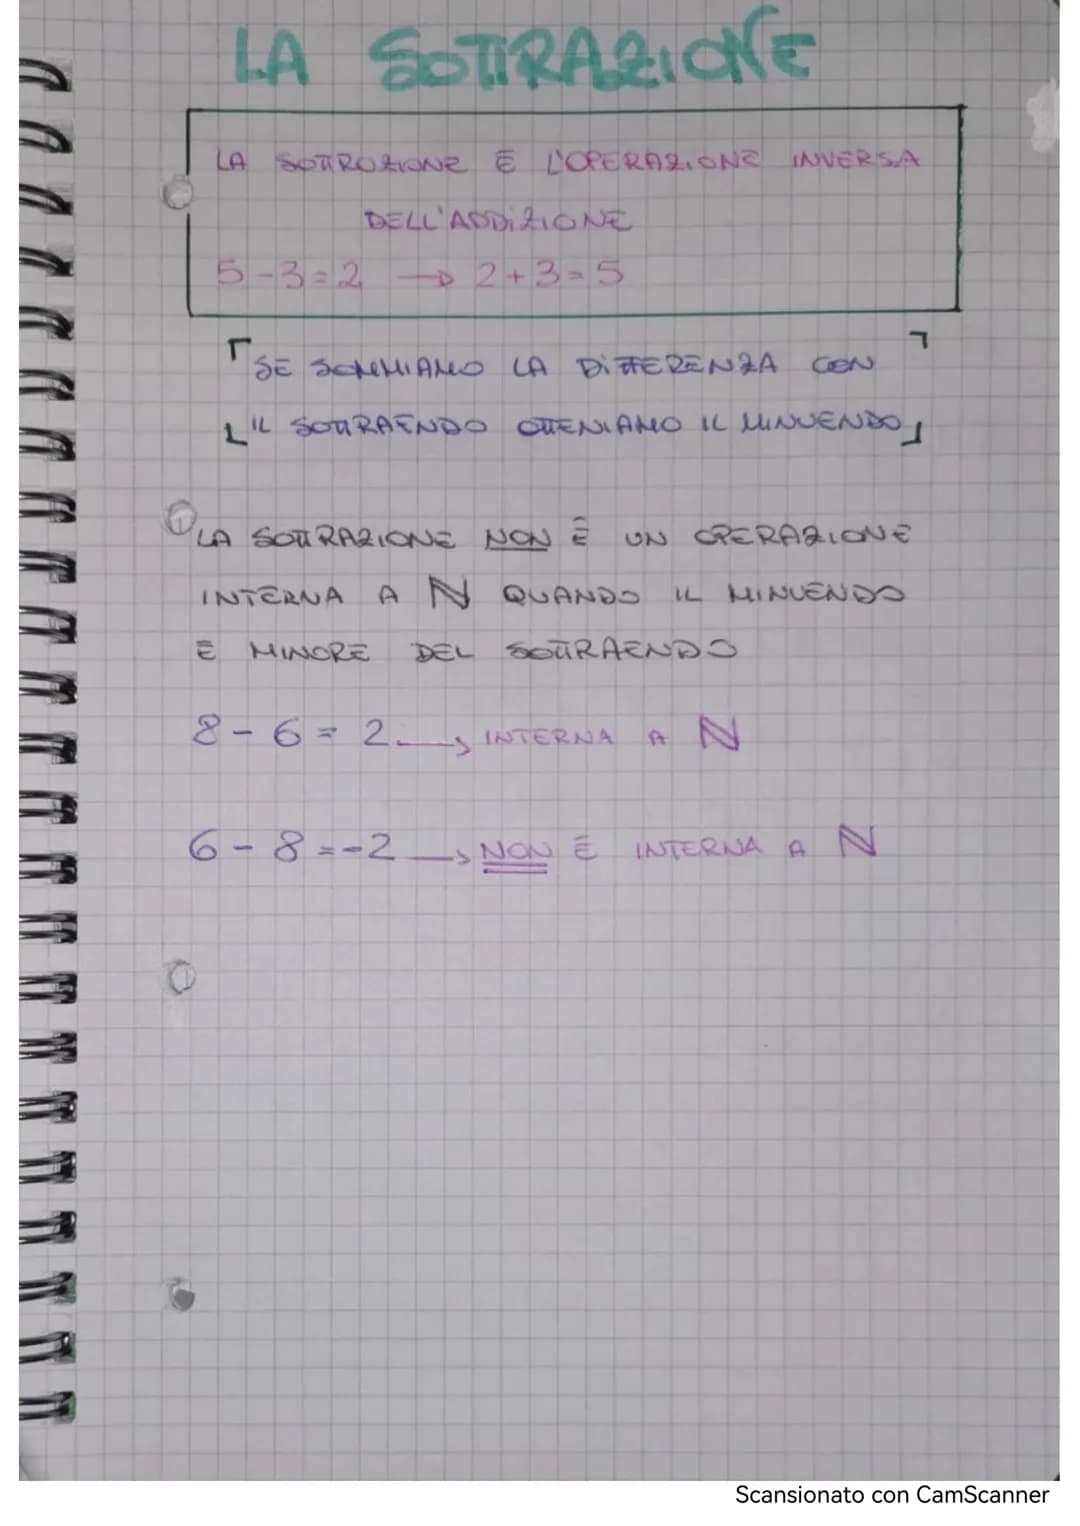 LA SOTTRAZIONE
LA SOTTROZIONE È L'OPERAZIONE INVERSA
DELL'ADDIZIONE
5-3=2 → 2+3=5
SE SOMMIAMO LA DIFFERENZA CON
IL SOTTRAENDO OTTENIAMO IL MINUENDO
LA SOTTRAZIONE NON È UN OPERAZIONE
INTERNA A ℕ QUANDO IL MINUENDO
È MINORE DEL SOTTRAENDO
8-6=2 → INTERNA A ℕ
6-8=-2 → NON È INTERNA A ℕ
Scansionato con CamScanner